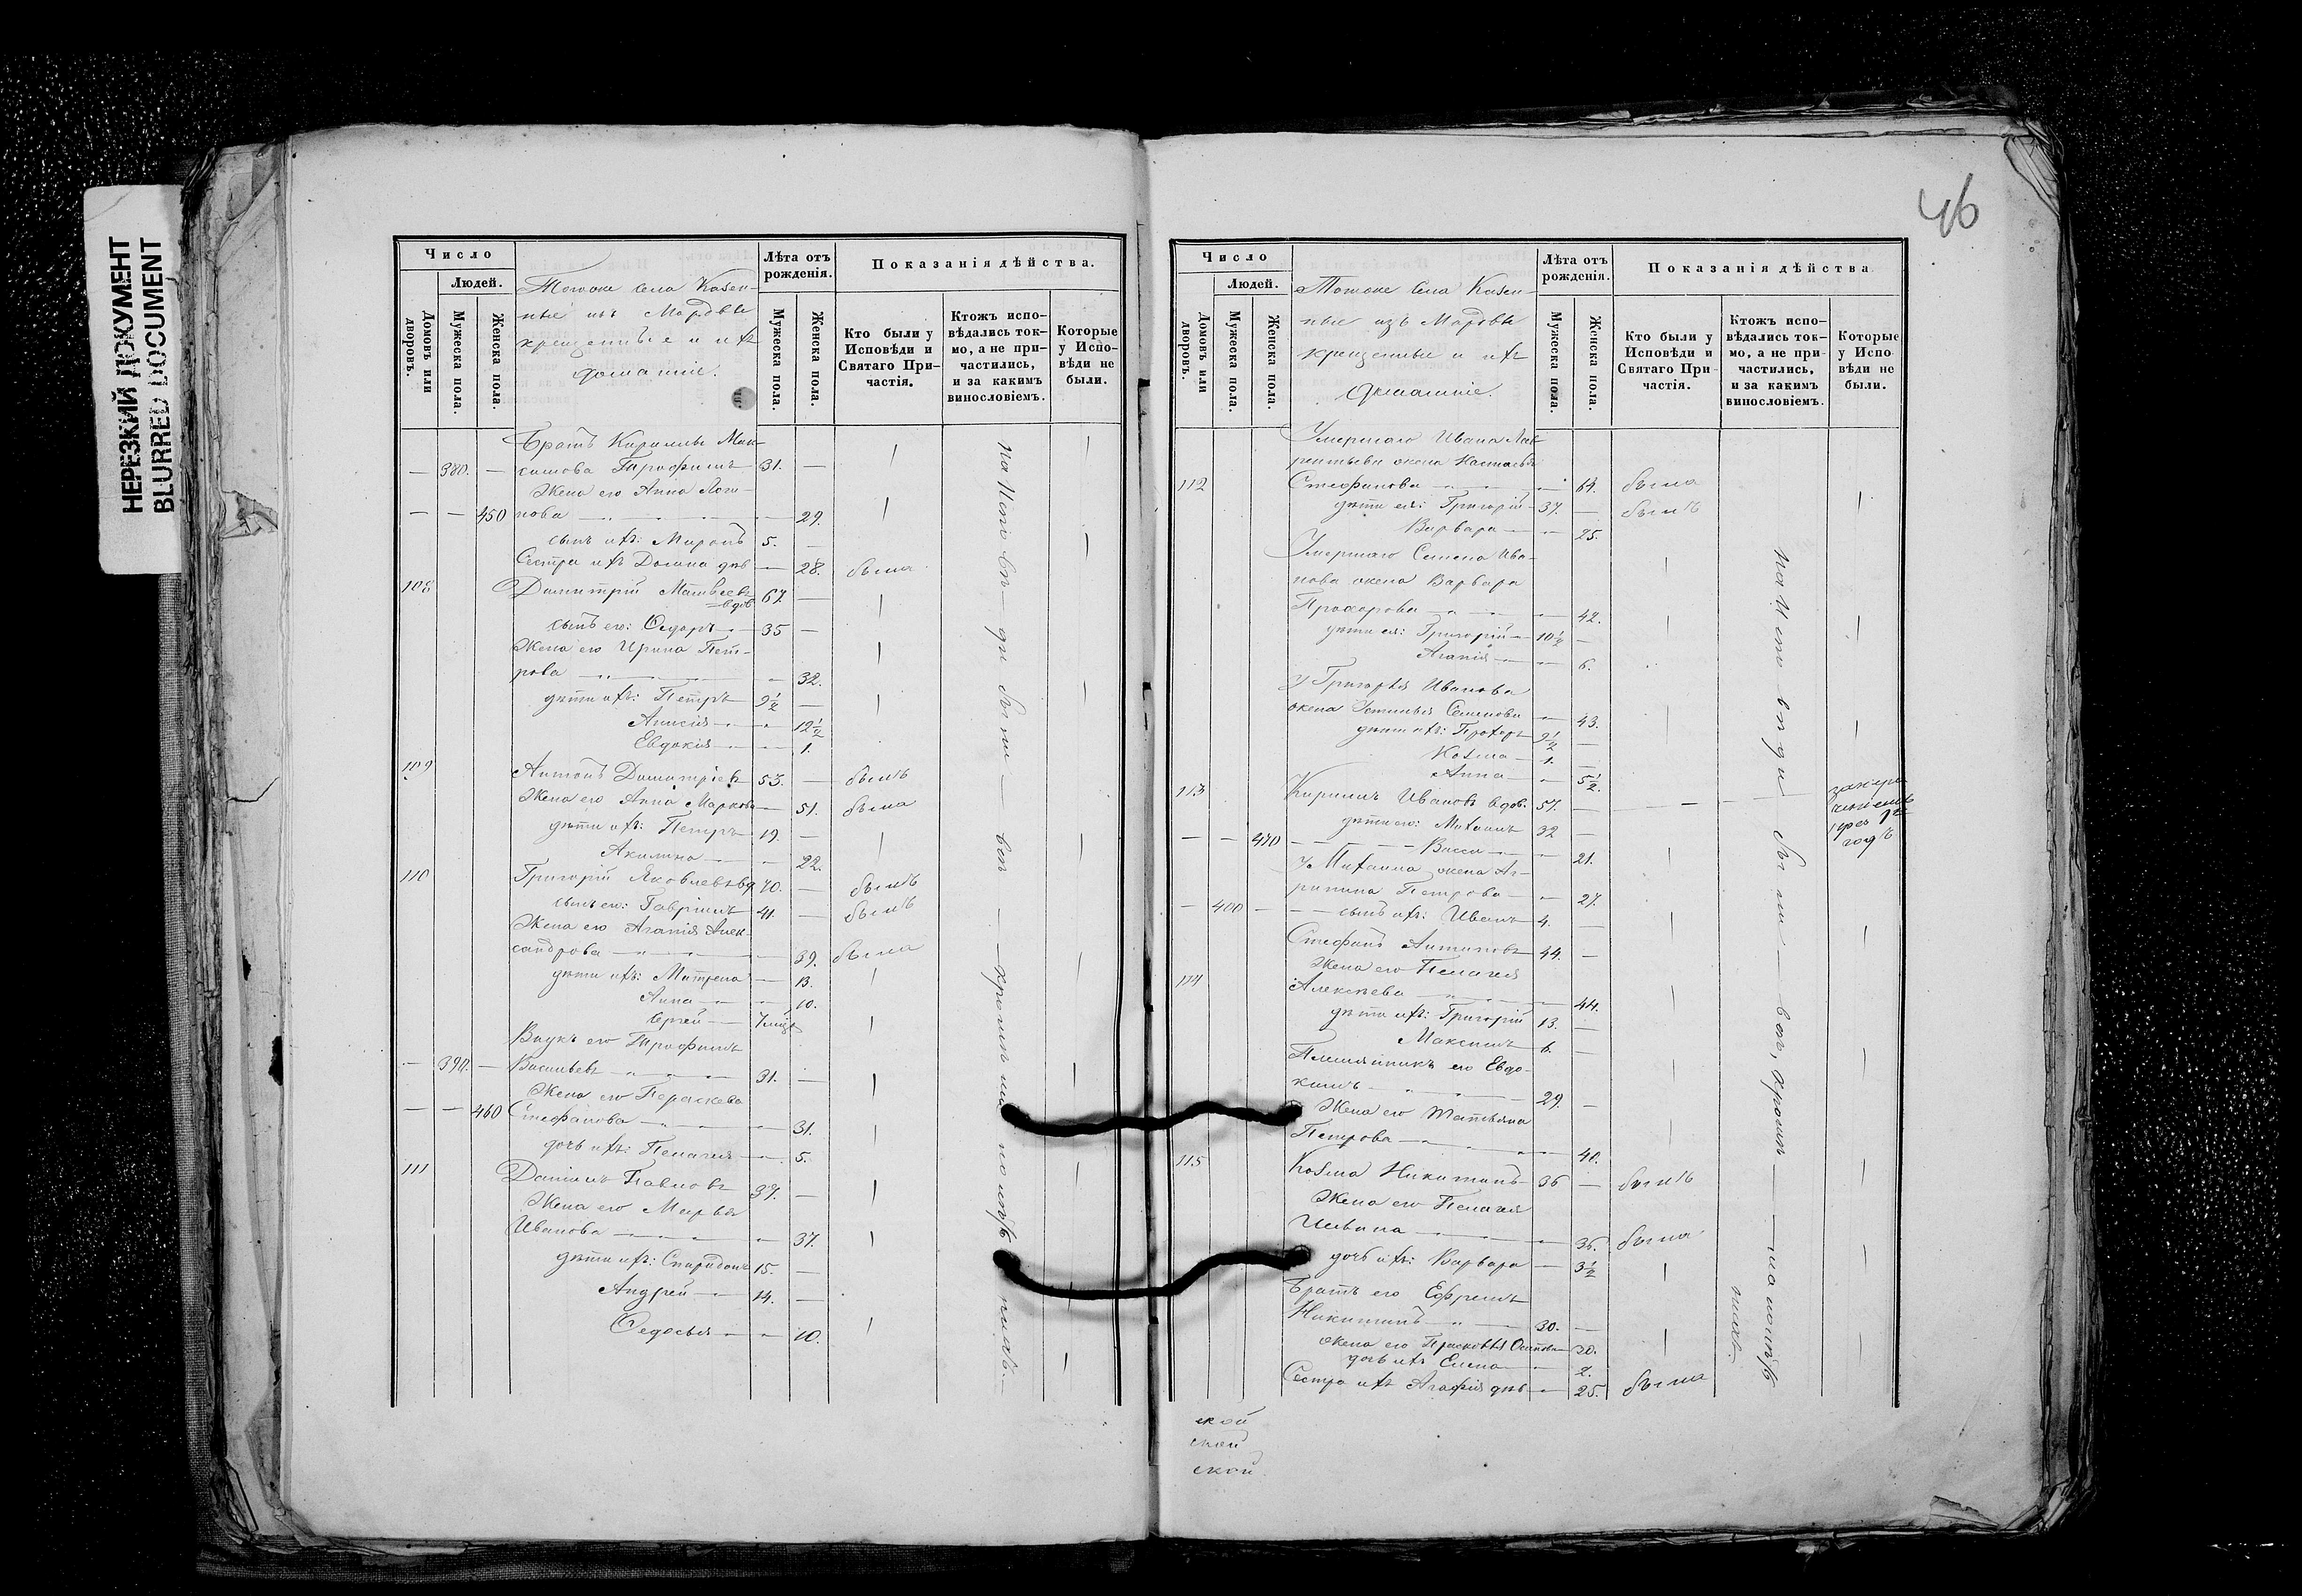 НЕРЕЗКИЙ ДОКУМЕНТ
BLURRED DOCUMENT
Число
Людей.
Домовъ или дворовъ.
Мужеска пола.
Женска пола.
Тогоже села Казен-
ные изъ Мордвы
крещенные и ихъ
домашніе.
Лѣта отъ рожденія.
Мужеска пола.
Женска пола.
Показанія дѣйства.
Кто были у Исповѣди и Святаго Причастія.
Ктожъ исповѣдались токмо, а не причастились, и за какимъ винословіемъ.
Которые у Исповѣди не были.
Братъ Кириллы Мак-
— 380. — симова Трофимъ 31. —
Жена его Анна Логи-
— — 450 нова — 29.
сынъ ихъ: Миронъ 5. —
Сестра ихъ Домна двв — 28. была
108 Димитрій Матвѣевъ вдов 67. —
сынъ его: Ѳедоръ 35 —
Жена его Ирина Пет-
рова — 32.
дѣти ихъ: Петръ 9½ —
Анисія — 12½
Евдокія — 1.
109 Антонъ Димитріевъ 53. — былъ
Жена его Анна Маркова — 51. была
дѣти ихъ: Петръ 19. —
Акилина — 22.
110 Григорій Яковлевъ вд 70. — былъ
сынъ его: Гавріилъ 41. — былъ
Жена его Агапія Алек-
сандрова — 39. была
дѣти ихъ: Матрена — 13.
Анна — 10.
Сергей 7 міцъ
Внукъ его Трофимъ
— 390. — Васильевъ 31. —
Жена его Параскева
— — 460 Стефанова — 31.
дочь ихъ: Пелагея — 5.
111 Даніилъ Павловъ 37. —
Жена его Марья
Иванова — 37.
дѣти ихъ: Спиридонъ 15. —
Андрей 14. —
Ѳедосья — 10.
на Исповѣ— ди были — всѣ — кромѣ
46
Число
Людей.
Домовъ или дворовъ.
Мужеска пола.
Женска пола.
Тогоже села Казен-
ные изъ Мордвы
крещенные и ихъ
домашніе.
Лѣта отъ рожденія.
Мужеска пола.
Женска пола.
Показанія дѣйства
Кто были у Исповѣди и Святаго Причастія.
Ктожъ исповѣдались токмо, а не причастились, и за какимъ винословіемъ.
Которые у Исповѣди не были.
Умершаго Ивана Лав-
рентьева жена Настасья
112 Стефанова — 64. была
дѣти ея: Григорій 37. — былъ
Варвара — 25.
Умершаго Семена Ива-
нова жена Варвара
Прохорова — 42.
дѣти ея: Григорій 10½ —
Агапія — 6.
у Григорья Иванова
жена Устинья Семенова — 43.
дѣти ихъ: Прохоръ 9½ —
Козма 1. —
Анна — 5½
113 Кириллъ Ивановъ вдов. 57. —
дѣти его: Михаилъ 32 —
— — 470 Васса — 21.
у Михаила жена Аг-
рипина Петрова — 27.
— 400 — сынъ ихъ: Иванъ 4. —
Стефанъ Антиповъ 44. —
Жена его Пелагея
114 Алексѣева — 44.
дѣти ихъ: Григорій 13. —
Максимъ 6. —
Племянникъ его Евдо-
кимъ 29. —
Жена его Татьяна
Петрова — 40.
115 Козма Никитинъ 36 — былъ
Жена его Пелагея
— 36. была
дочь ихъ: Варвара — 3½
Братъ его Ефремъ
Никитинъ 30. —
жена его Прасковья Осипова 30.
дочь ихъ Елена 2.
Сестра ихъ Агафія двв — 25. была
на Исповѣди были — всѣ, кромѣ — малолѣтнихъ
годъ
ской
ской
ской